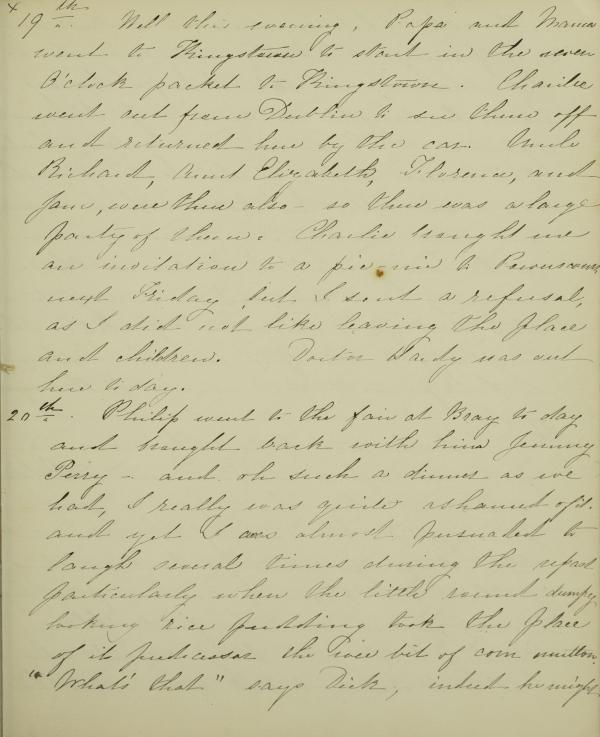 x 19th. Well this evening, Papa and Mama
went to Kingstown to start in the seven
O'clock packet to Kingstown. Charlie
went out from Dublin to see them off
and returned here by the car. Uncle
Richard, Aunt Elizabeth, Florence, and
Jane, were there also - so there was a large
party of them. Charlie brought me
an invitation to a pic-nic to Powerscourt
next Friday but I sent a refusal,
as I did not like leaving the place
and children. Doctor Hardy was out
here to day.
20th. Philip went to the fair at Bray to day
and brought back with him Jemmy
Perry - and oh such a dinner as we
had, I really was quite ashamed of it.
and yet I was almost persuaded to
laugh several times during the repast
particularly when the little round dumpy
looking rice pudding took the place
of its predecessor the wee bit of corn mutton.
"What's that" says Dick, indeed he might